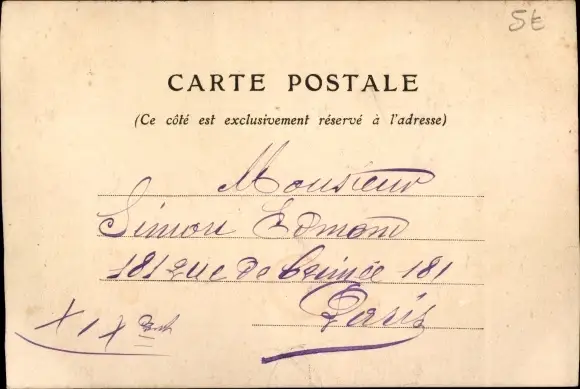 5€
CARTE POSTALE
(Ce côté est exclusivement réservé à l'adresse)
Monsieur
Simon Edmond
181 rue de Crimée 181
Paris
XIX